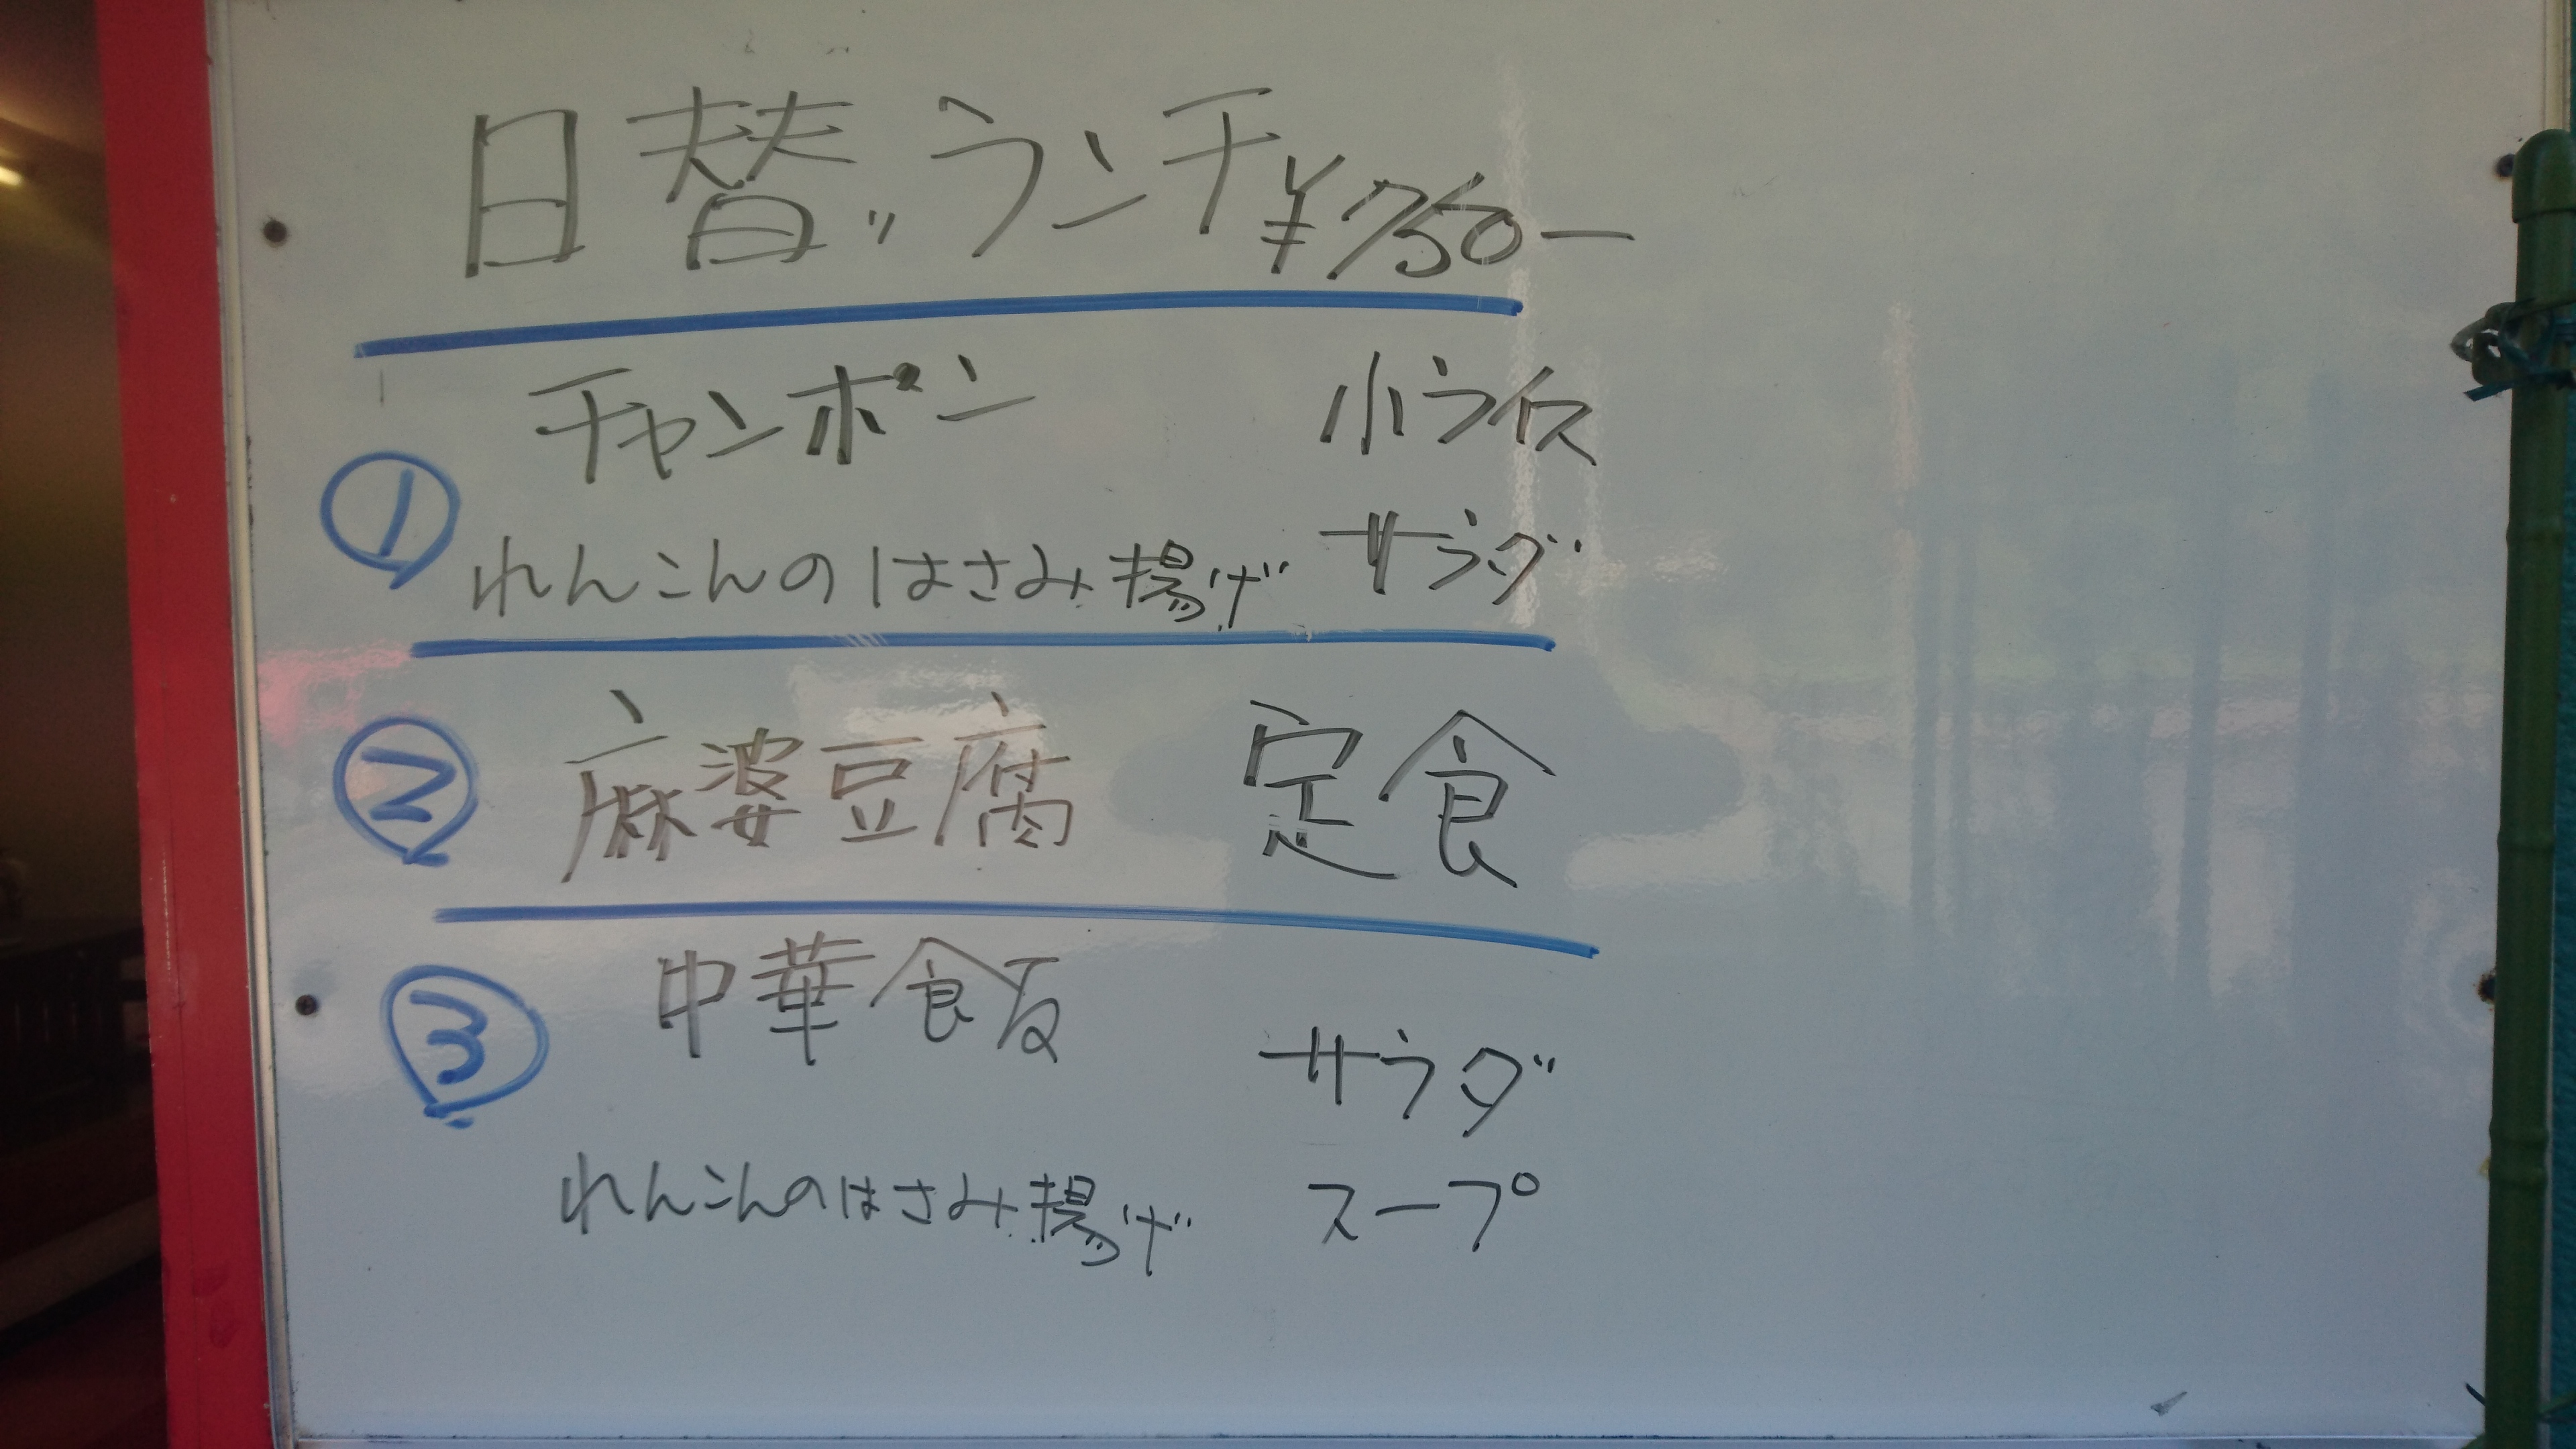 日替りランチ¥750ー
チャンポン 小ライス
①
れんこんのはさみ揚げ サラダ
② 麻婆豆腐 定食
中華飯
③ サラダ
れんこんのはさみ揚げ スープ